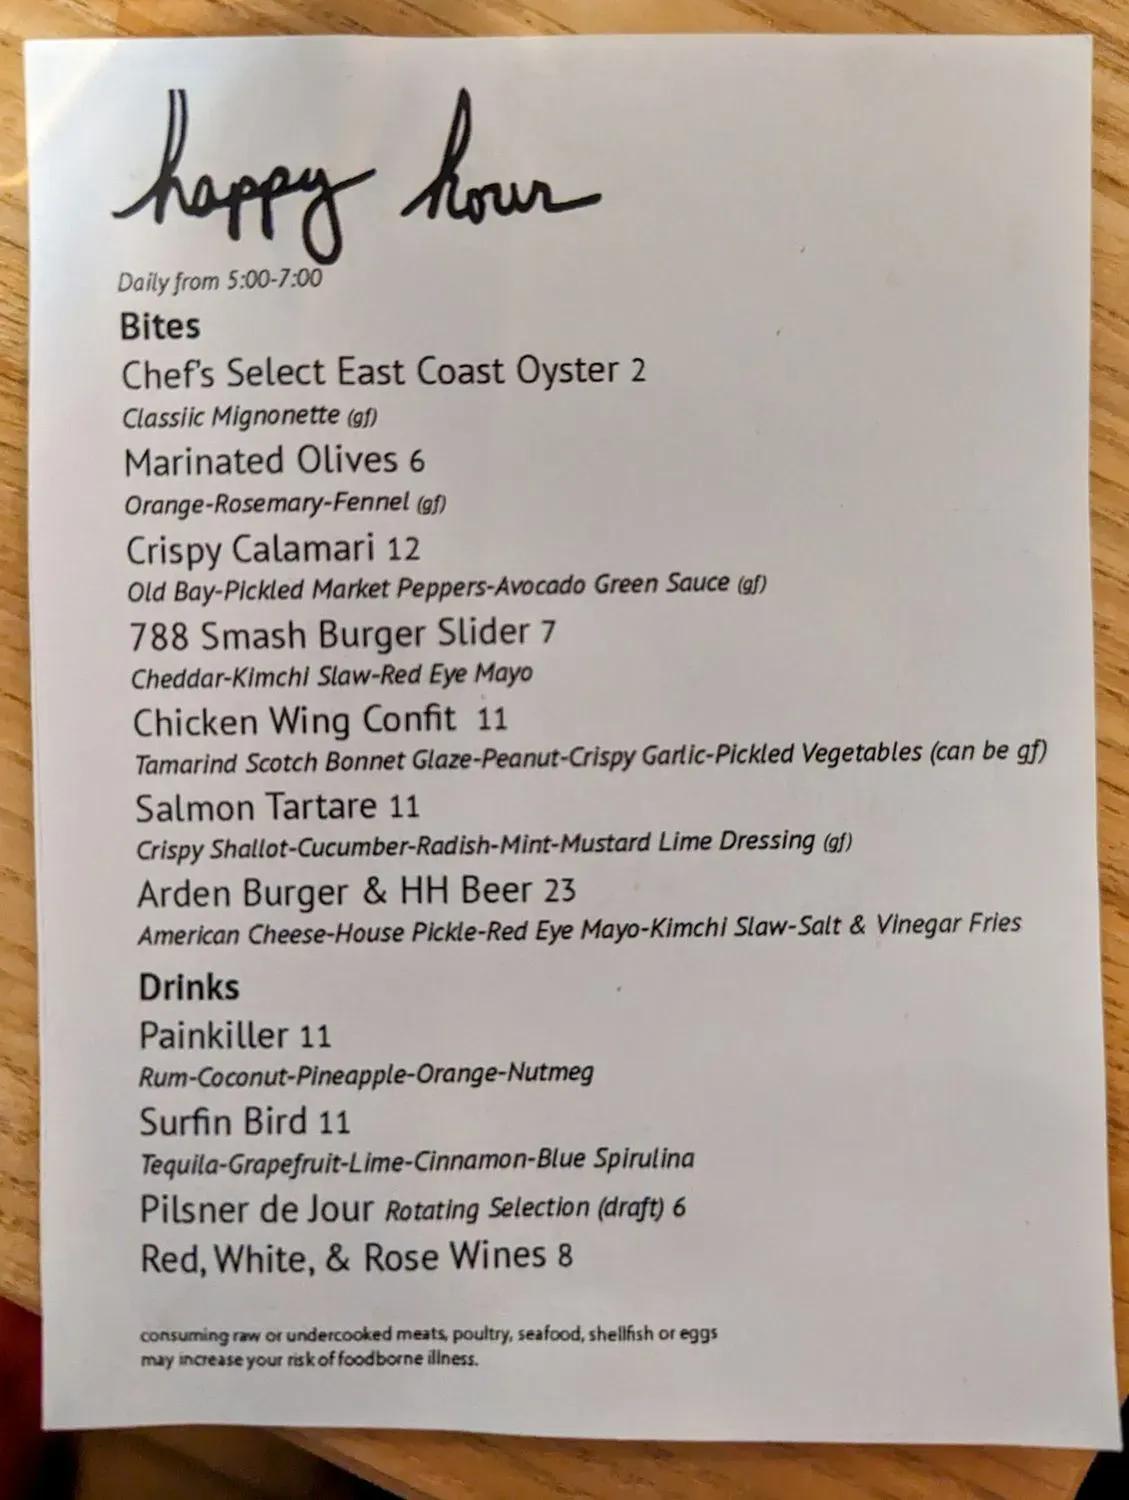 happy hour
Daily from 5:00-7:00
Bites
Chef's Select East Coast Oyster 2
Classiic Mignonette (gf)
Marinated Olives 6
Orange-Rosemary-Fennel (gf)
Crispy Calamari 12
Old Bay-Pickled Market Peppers-Avocado Green Sauce (gf)
788 Smash Burger Slider 7
Cheddar-Kimchi Slaw-Red Eye Mayo
Chicken Wing Confit 11
Tamarind Scotch Bonnet Glaze-Peanut-Crispy Garlic-Pickled Vegetables (can be gf)
Salmon Tartare 11
Crispy Shallot-Cucumber-Radish-Mint-Mustard Lime Dressing (gf)
Arden Burger & HH Beer 23
American Cheese-House Pickle-Red Eye Mayo-Kimchi Slaw-Salt & Vinegar Fries
Drinks
Painkiller 11
Rum-Coconut-Pineapple-Orange-Nutmeg
Surfin Bird 11
Tequila-Grapefruit-Lime-Cinnamon-Blue Spirulina
Pilsner de Jour Rotating Selection (draft) 6
Red, White, & Rose Wines 8
consuming raw or undercooked meats, poultry, seafood, shellfish or eggs
may increase your risk of foodborne illness.